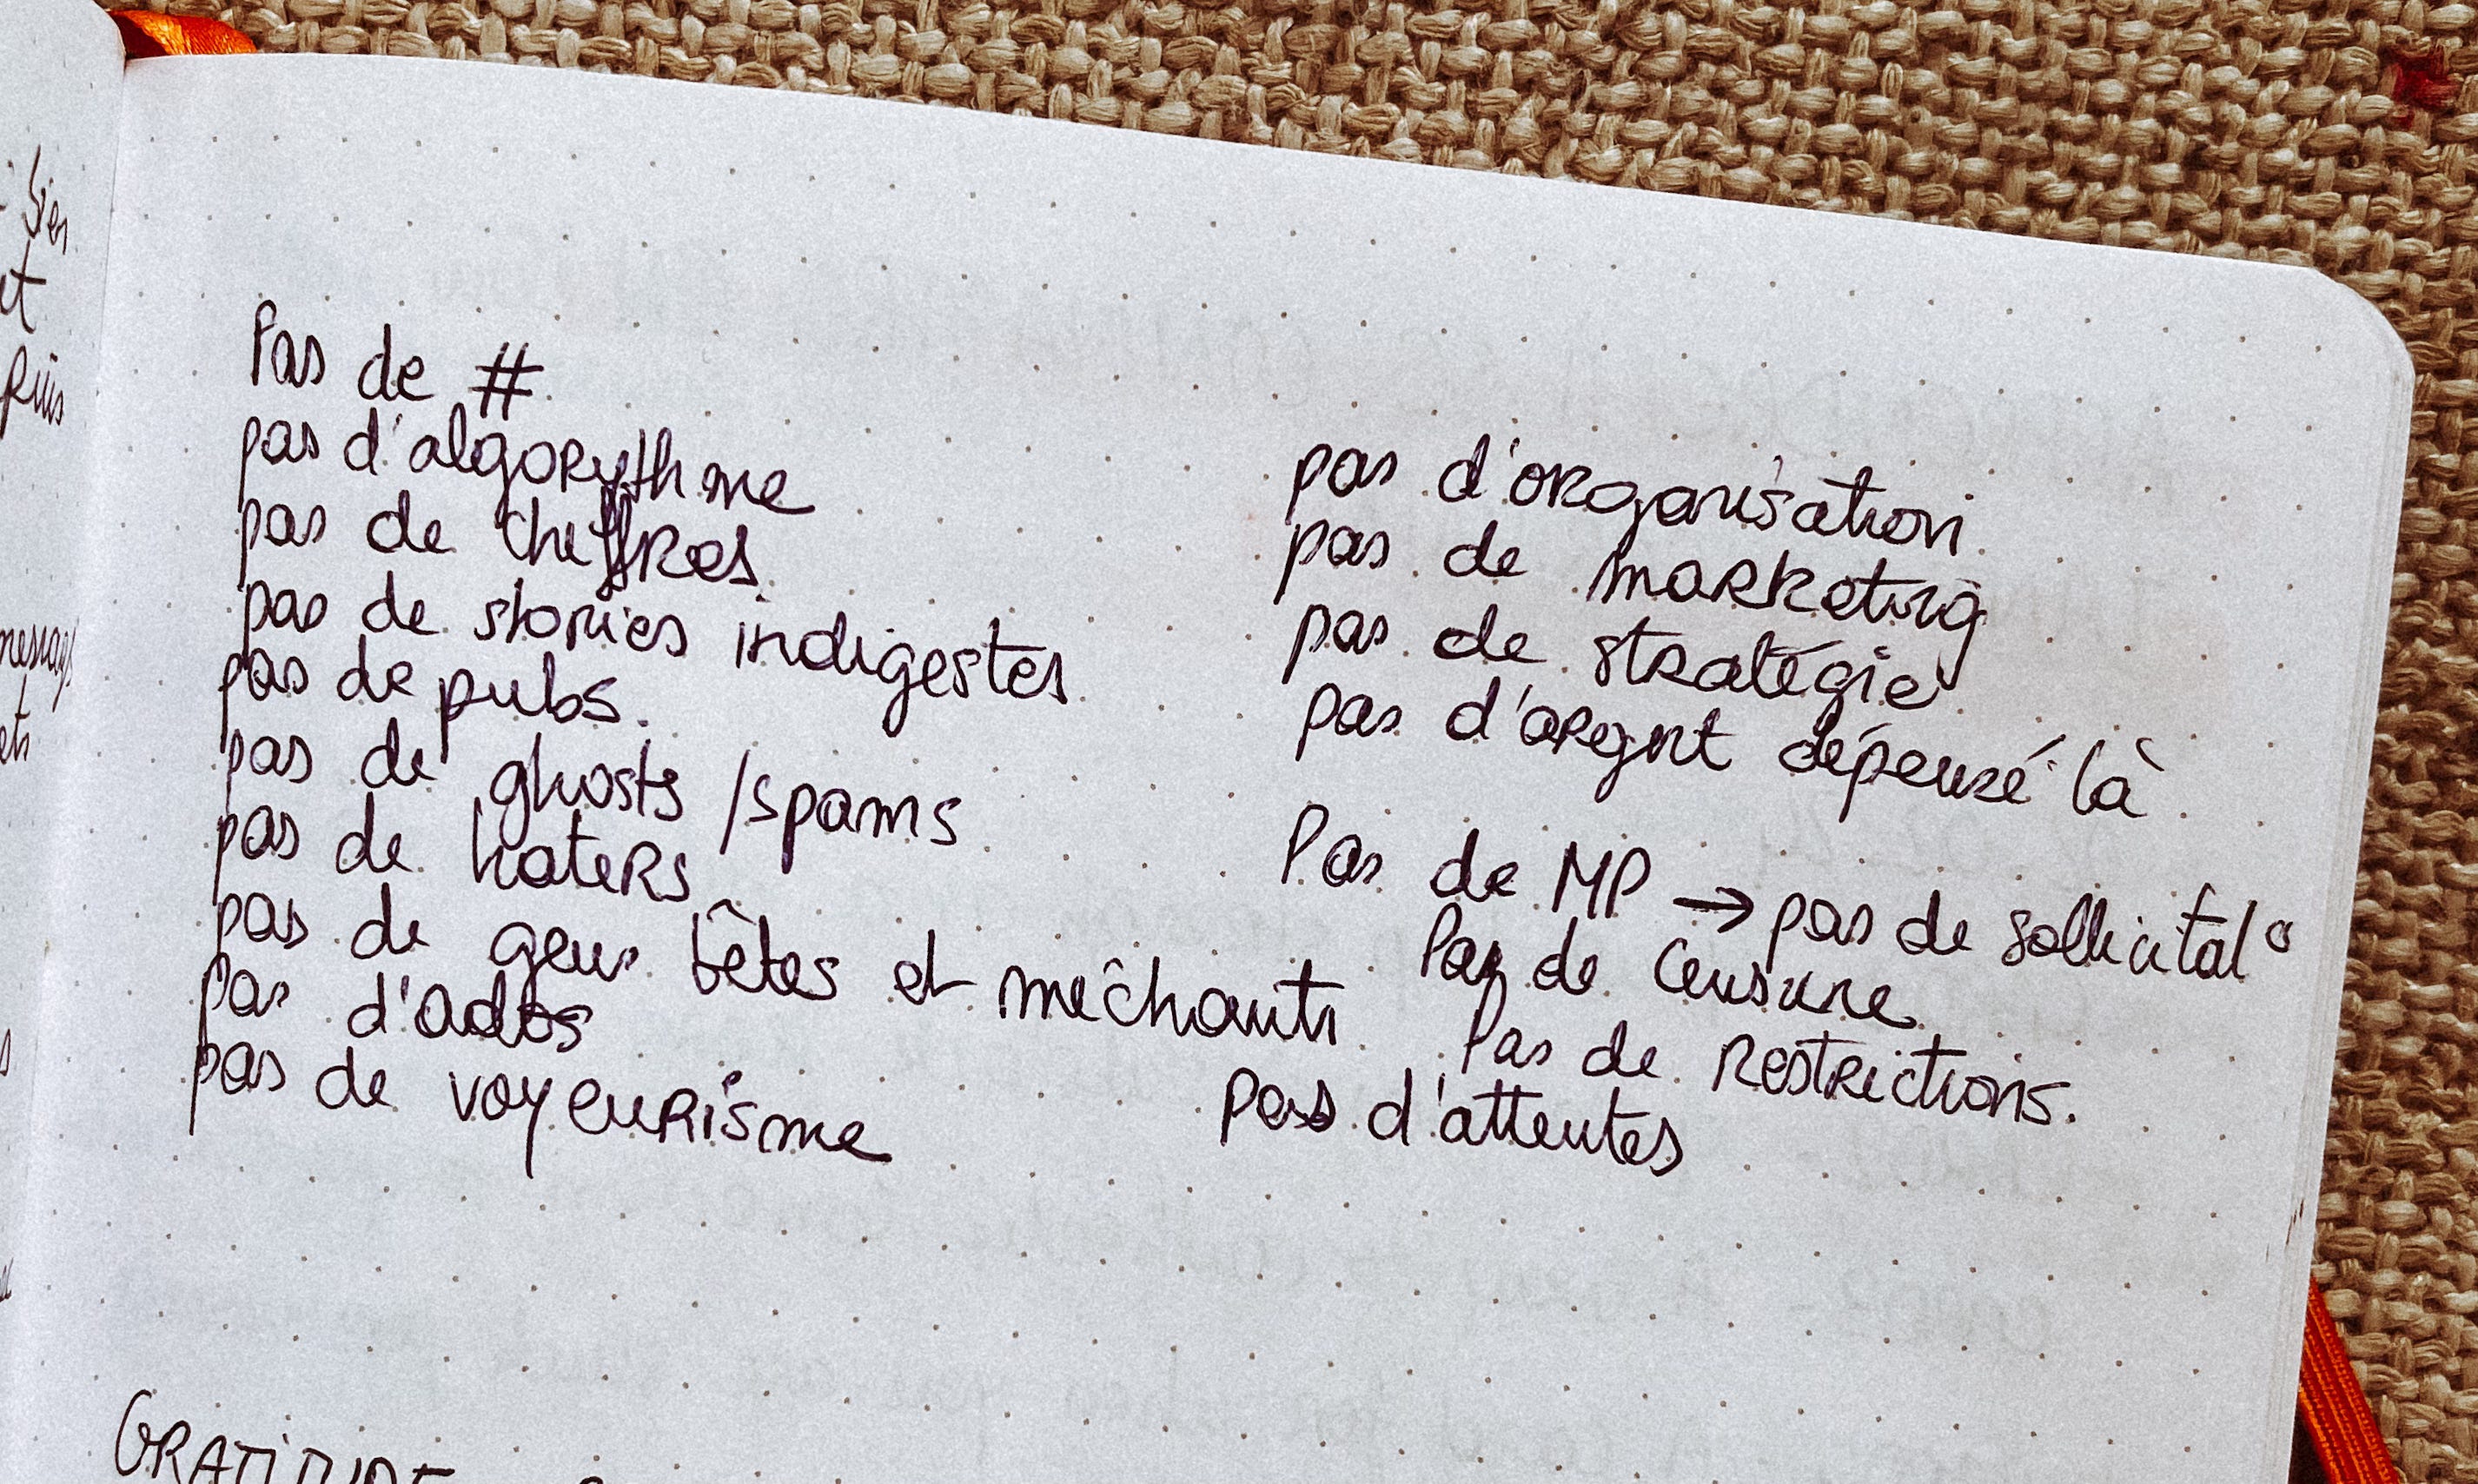 Pas de #
pas d'algorythme
pas de chiffres
pas de stories indigestes
pas de pubs.
pas de ghosts / spams
pas de haters
pas de gens bêtes et mêchants
pas d'ados
pas de voyeurisme
pas d'organisation
pas de marketing
pas de stratégie
pas d'argent dépensé là
Pas de MP → pas de sollicitat°
Pas de censure
Pas de restrictions.
pas d'attentes
GRATITUDE
et
puis